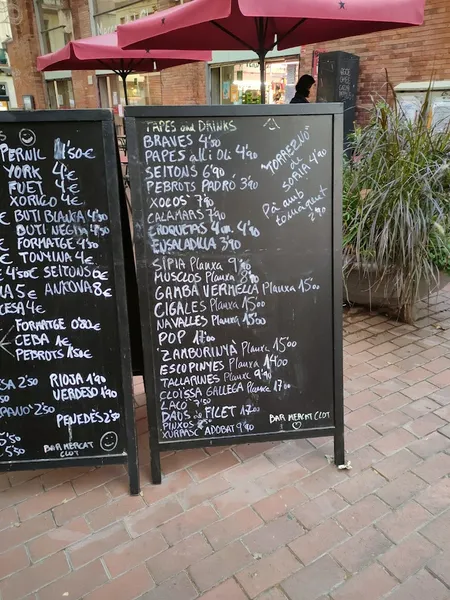 PERNIL 4'50€
YORK 4€
FUET 4€
XORIÇO 4€
BUTI BLANCA 4'50
BUTI NEGRA 4'50
FORMATGE 4'50
TONYINA 4€
4'50€ SEITONS 8€
5€ ANXOVA 8€
FORMATGE 0'80€
CEBA 1€
PEBROTS 1'50€
2'50 RIOJA 1'90
2'50 VERDEJO 1'90
2'50
PENEDÈS 2'50
BAR MERCAT
CLOT
TAPES and DRINKS
BRAVES 4'90
PAPES alli Oli 4'90
SEITONS 6'90
PEBROTS PADRÓ 3'90
XOCOS 7'90
CALAMARS 7'90
CROQUETAS 4un. 4'90
ENSALADILLA 3'90
"TORREZNO"
de
SORIA 4'90
Pà amb
tomaquet
2'90
SIPIA Planxa 9'90
MUSCLOS Planxa 8'90
GAMBA VERMELLA Planxa 15'00
CIGALES Planxa 15'00
NAVALLES Planxa 15'00
POP 17'00
ZAMBORINYA Planxa 15'00
ESCOPINYES Planxa 14'00
TALLARINES Planxa 9'90
CLOÏSSA GALLEGA Planxa 17'00
LACÓ 7'50
DAUS de FILET 17'00
PINXOS
XURRASC ADOBAT 9'90
BAR MERCAT CLOT